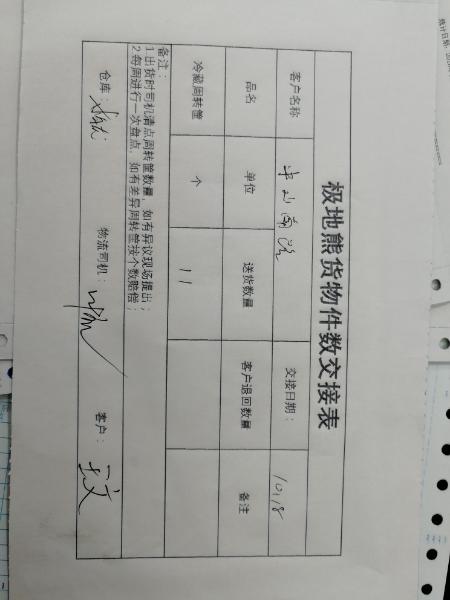 极地熊货物件数交接表
客户名称 半山南路 交接日期： 10.18
品名 单位 送货数量 客户退回数量 备注
冷藏周转筐 个 11
备注：
1.出货时司机清点周转筐数量，如有异议现场提出；
2.每周进行一次盘点，如有差异周转筐按个数赔偿；
仓库： 物流司机： 客户：
统计日期：